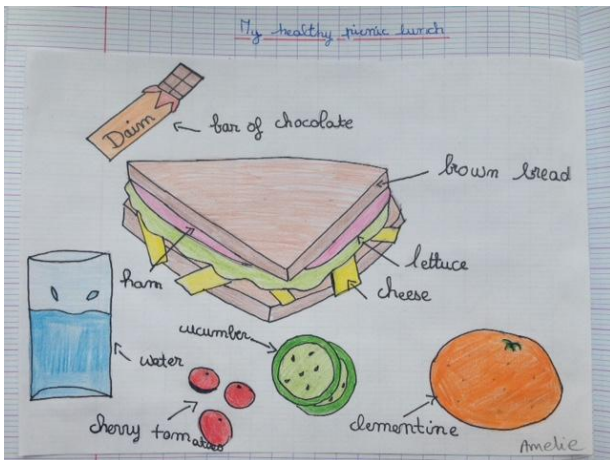 My healthy picnic lunch
Daim
bar of chocolate
brown bread
lettuce
ham
cheese
cucumber
water
cherry tomatoes
clementine
Amelie